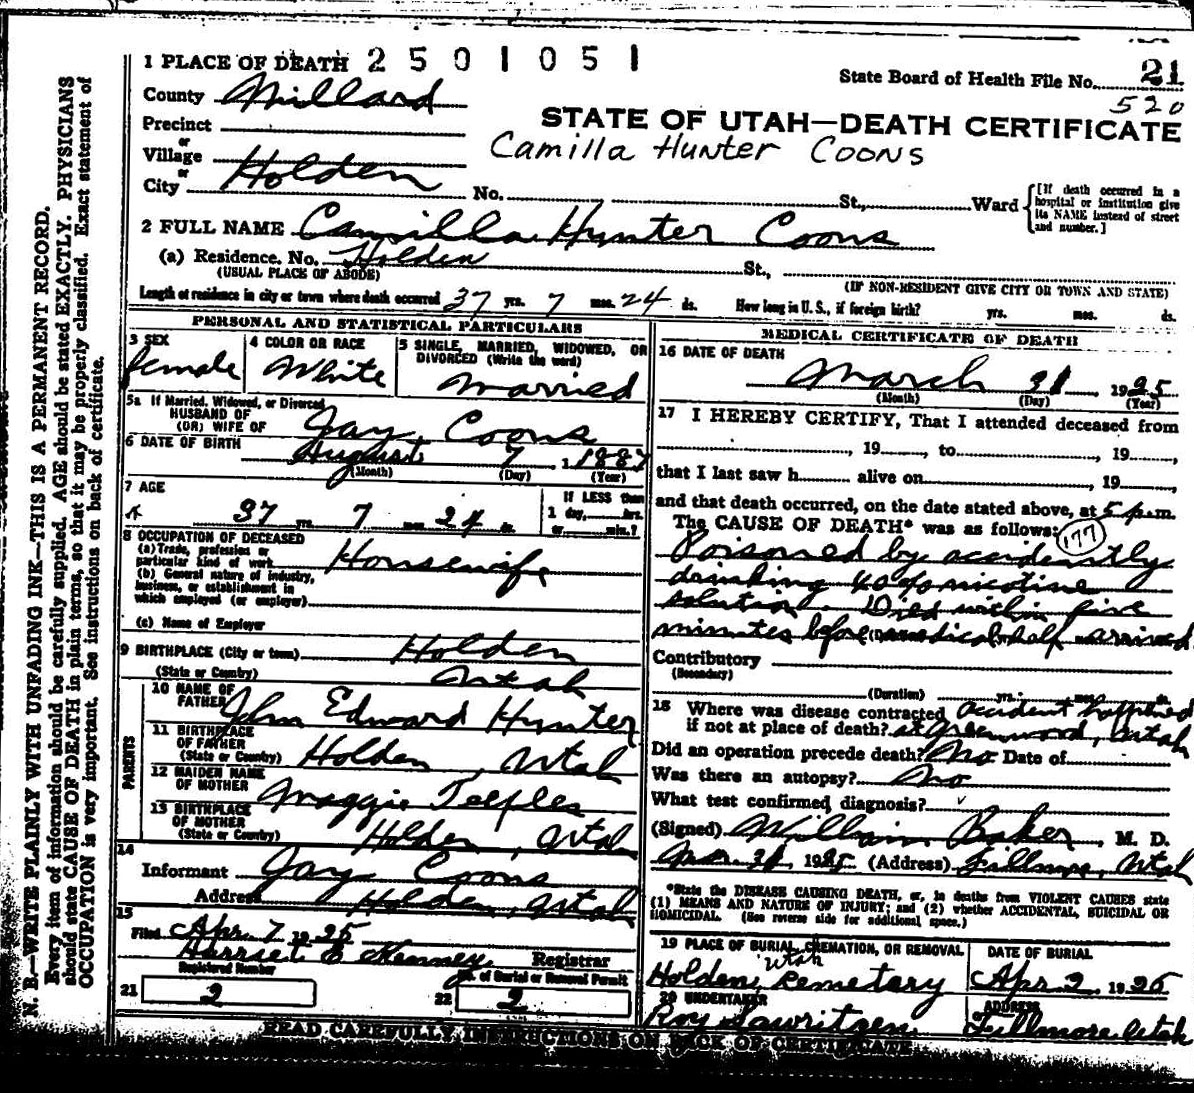 1 PLACE OF DEATH 2501051
State Board of Health File No. 21
County Millard
520
STATE OF UTAH—DEATH CERTIFICATE
Precinct
Camilla Hunter Coons
or
Village Holden
or
City No. St., Ward
[If death occurred in a hospital or institution give its NAME instead of street and number.]
2 FULL NAME Camilla Hunter Coons
(a) Residence. No. Holden St.,
(USUAL PLACE OF ABODE) (IF NON-RESIDENT GIVE CITY OR TOWN AND STATE)
Length of residence in city or town where death occurred 37 yrs. 7 mos. 24 ds. How long in U. S., if foreign birth? yrs. mos. ds.
PERSONAL AND STATISTICAL PARTICULARS
3 SEX
female
4 COLOR OR RACE
White
5 SINGLE, MARRIED, WIDOWED, OR DIVORCED (Write the word)
Married
5a If Married, Widowed, or Divorced
HUSBAND OF
(OR) WIFE OF Jay Coons
6 DATE OF BIRTH August 7, 1887
(Month) (Day) (Year)
7 AGE
37 yrs. 7 mos. 24 ds.
If LESS than
1 day, hrs.
or min.?
8 OCCUPATION OF DECEASED
(a) Trade, profession or
particular kind of work Housewife
(b) General nature of industry,
business, or establishment in
which employed (or employer)
(c) Name of Employer
9 BIRTHPLACE (City or town) Holden
(State or Country) Utah
PARENTS
10 NAME OF
FATHER John Edward Hunter
11 BIRTHPLACE
OF FATHER
(State or Country) Holden, Utah
12 MAIDEN NAME
OF MOTHER Maggie Teeples
13 BIRTHPLACE
OF MOTHER
(State or Country) Holden, Utah
14
Informant Jay Coons
Address Holden, Utah
15
Filed Apr. 7 1925
Harriet E Registrar
Registered Number
21 2
No. of Burial or Removal Permit
22 2
MEDICAL CERTIFICATE OF DEATH
16 DATE OF DEATH
March 31, 1925
(Month) (Day) (Year)
17 I HEREBY CERTIFY, That I attended deceased from
, 19 , to , 19 ,
that I last saw h alive on , 19 ,
and that death occurred, on the date stated above, at 5 p.m.
The CAUSE OF DEATH* was as follows: 177
Poisoned by accidently
drinking 40% nicotine
solution. Died within five
minutes before medical help arrived
Contributory
(Secondary)
(Duration) yrs. mos. ds.
18 Where was disease contracted Accident happened
if not at place of death? at Greenwood, Utah
Did an operation precede death? No Date of
Was there an autopsy? No
What test confirmed diagnosis?
(Signed) William Baker, M. D.
Mar. 31, 1925 (Address) Fillmore, Utah
*State the DISEASE CAUSING DEATH, or, in deaths from VIOLENT CAUSES state
(1) MEANS AND NATURE OF INJURY; and (2) whether ACCIDENTAL, SUICIDAL OR
HOMICIDAL. (See reverse side for additional space.)
19 PLACE OF BURIAL, CREMATION, OR REMOVAL
Utah
Holden, Cemetery
DATE OF BURIAL
Apr 2, 1925
20 UNDERTAKER
Roy Lauritzen
ADDRESS
Fillmore Utah
READ CAREFULLY INSTRUCTIONS ON BACK OF CERTIFICATE
N. B.—WRITE PLAINLY WITH UNFADING INK—THIS IS A PERMANENT RECORD.
Every item of information should be carefully supplied. AGE should be stated EXACTLY. PHYSICIANS
should state CAUSE OF DEATH in plain terms, so that it may be properly classified. Exact statement of
OCCUPATION is very important. See instructions on back of certificate.